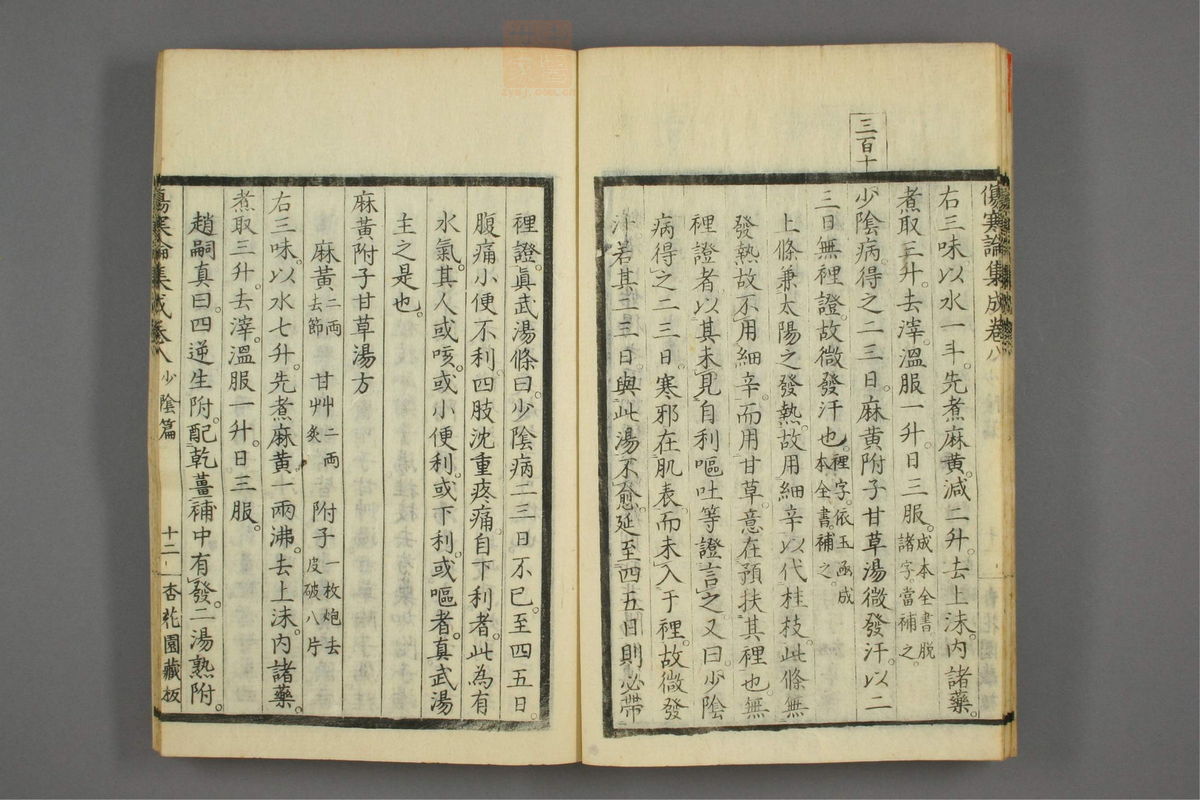 三百十
傷寒論集成卷八
右三味。以水一斗。先煮麻黄。減二升。去上沫。內諸藥。
煮取三升。去滓。溫服一升。日三服。成本全書脫諸字。當補之。
少陰病。得之二三日。麻黄附子甘草湯微發汗。以二
三日無裡證。故微發汗也。裡字。依玉函成本全書。補之。
上條兼太陽之發熱。故用細辛以代桂枝。此條無
發熱。故不用細辛。而用甘草。意在預扶其裡也。無
裡證者。以其未見自利嘔吐等證言之。又曰。少陰
病得之二三日。寒邪在肌表。而未入于裡。故微發
汗。若其二三日。與此湯不愈。延至四五日。則必帶
裡證。眞武湯條曰。少陰病二三日不已。至四五日。
腹痛小便不利。四肢沈重疼痛。自下利者。此為有
水氣。其人或咳。或小便利。或下利。或嘔者。真武湯
主之是也。
麻黃附子甘草湯方
麻黃二兩去節 甘艸二両炙 附子一枚炮去皮破八片
右三味。以水七升。先煮麻黄一兩沸。去上沫。內諸藥。
煮取三升。去滓。溫服一升。日三服。
趙嗣真曰。四逆生附。配乾薑。補中有發。二湯熟附。
傷寒論集成卷八 少陰篇 十二 杏花園藏板